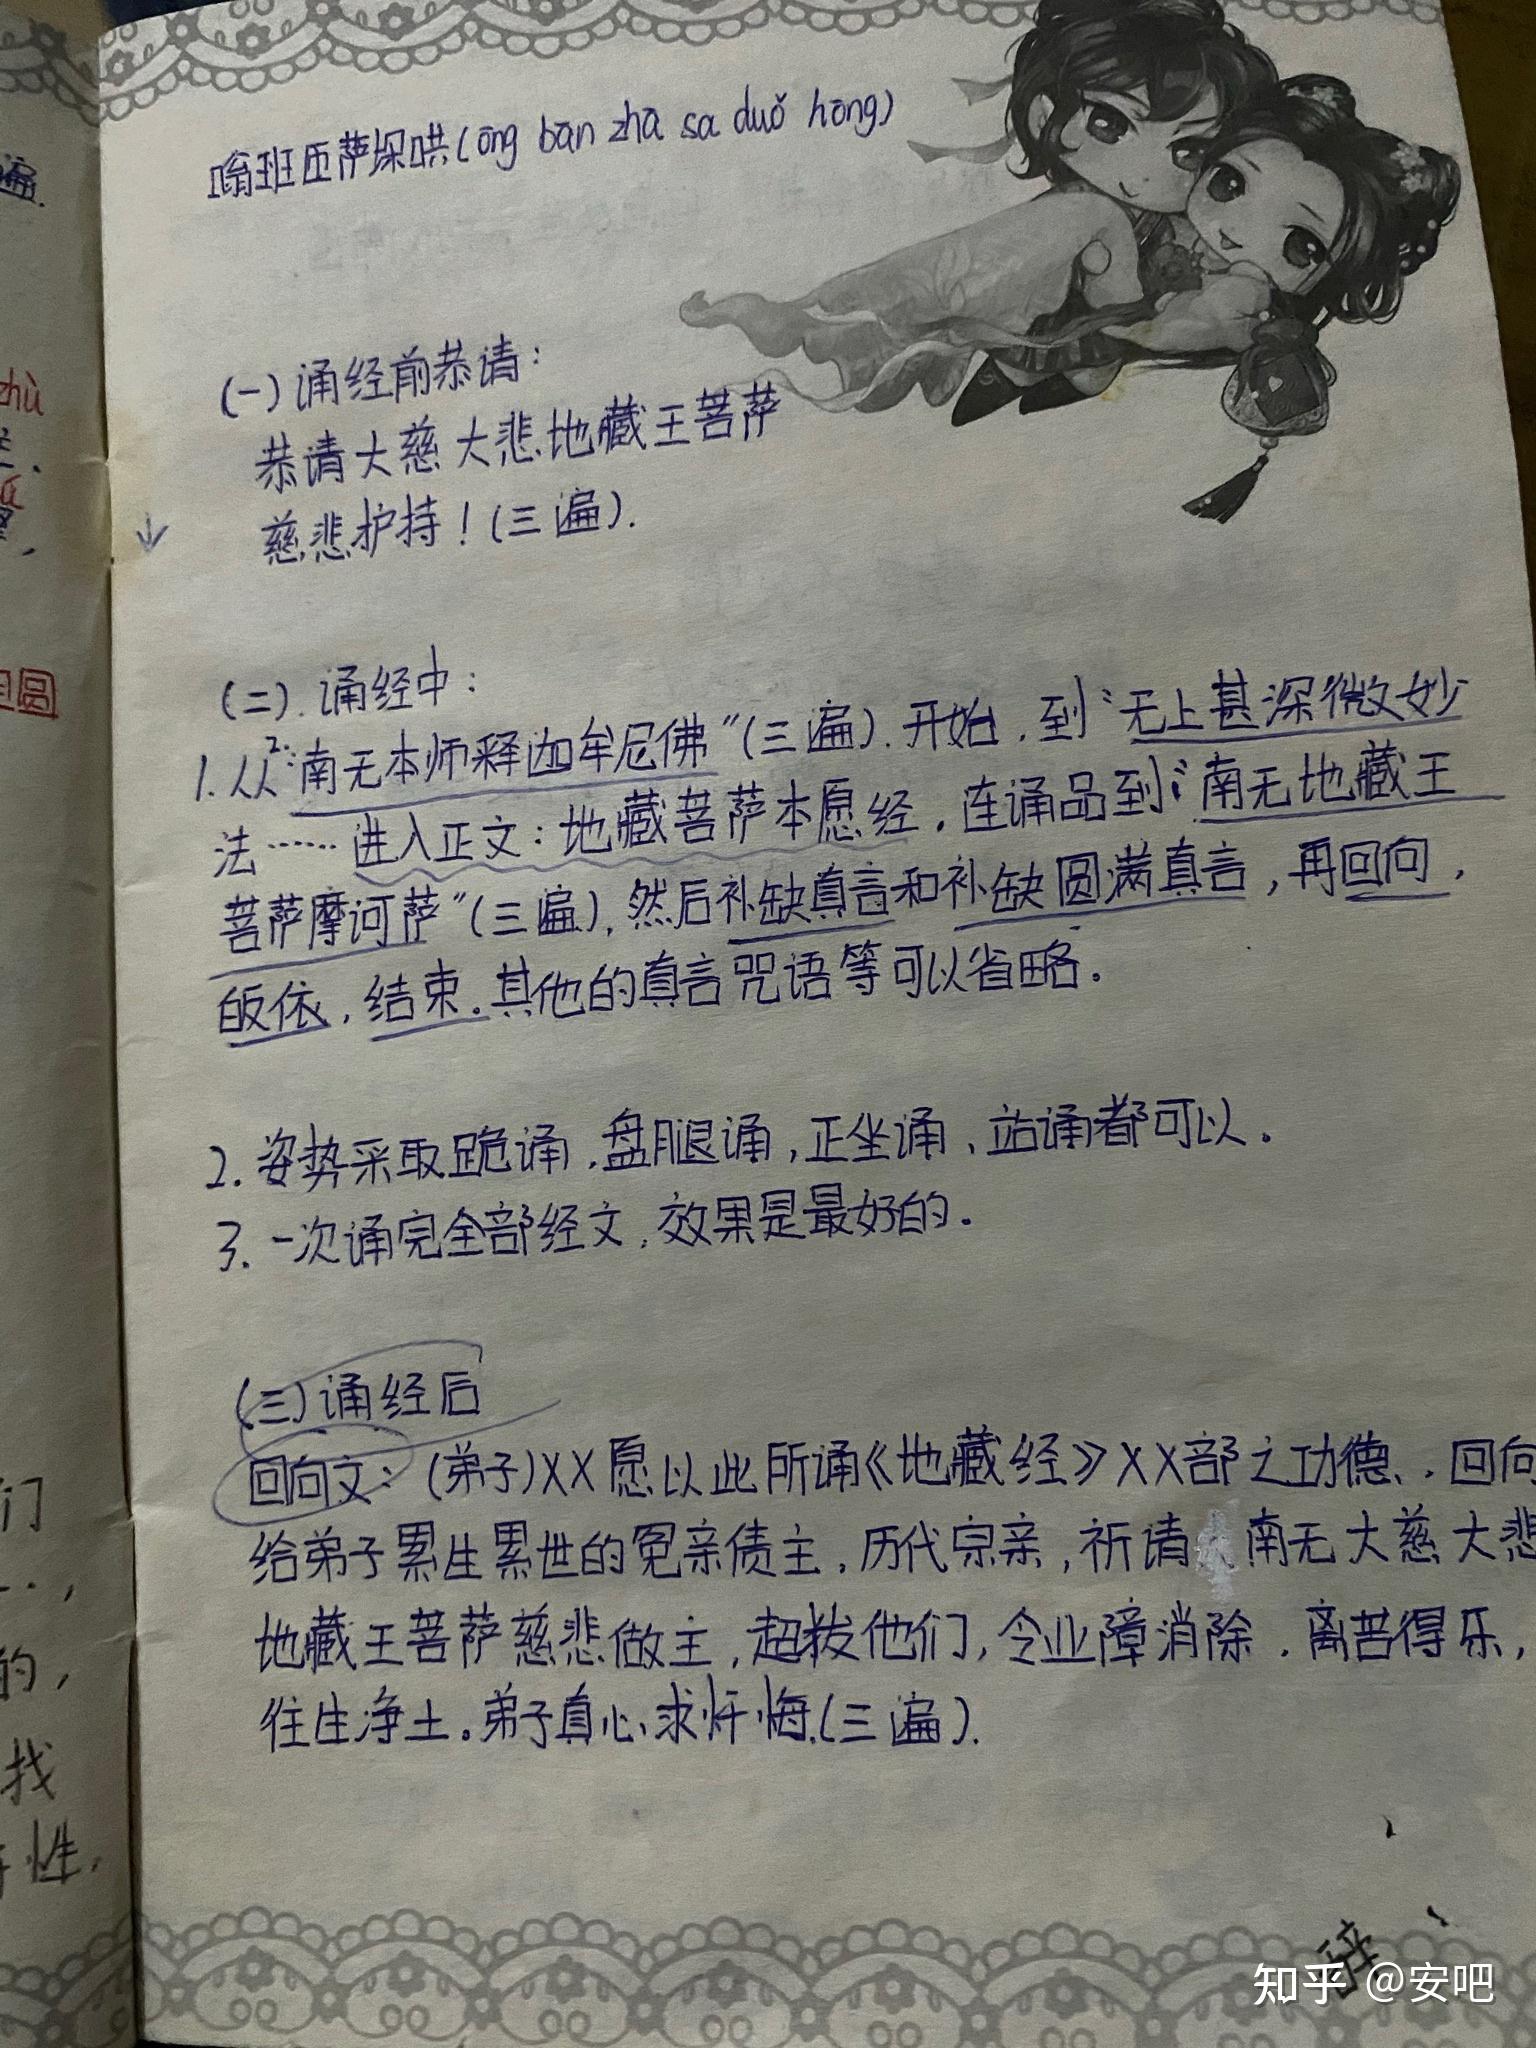 唵班匝萨埵吽(ōng bān zhā sa duǒ hōng)
(一)诵经前恭请:
恭请大慈大悲地藏王菩萨
慈悲护持!(三遍).
(二).诵经中:
1.从“南无本师释迦牟尼佛”(三遍).开始,到“无上甚深微妙
法……进入正文:地藏菩萨本愿经,连诵品到“南无地藏王
菩萨摩诃萨”(三遍),然后补缺真言和补缺圆满真言,再回向,
皈依,结束。其他的真言咒语等可以省略。
2.姿势采取跪诵,盘腿诵,正坐诵、站诵都可以。
3.一次诵完全部经文,效果是最好的。
(三)诵经后
回向文:(弟子)XX愿以此所诵《地藏经》XX部之功德,回向
给弟子累生累世的冤亲债主,历代宗亲,祈请南无大慈大悲
地藏王菩萨慈悲做主,超拔他们,令业障消除,离苦得乐,
往生净土。弟子真心求忏悔.(三遍).
知乎 @安吧
遍.
zhù
圆
们
的,
找
性.